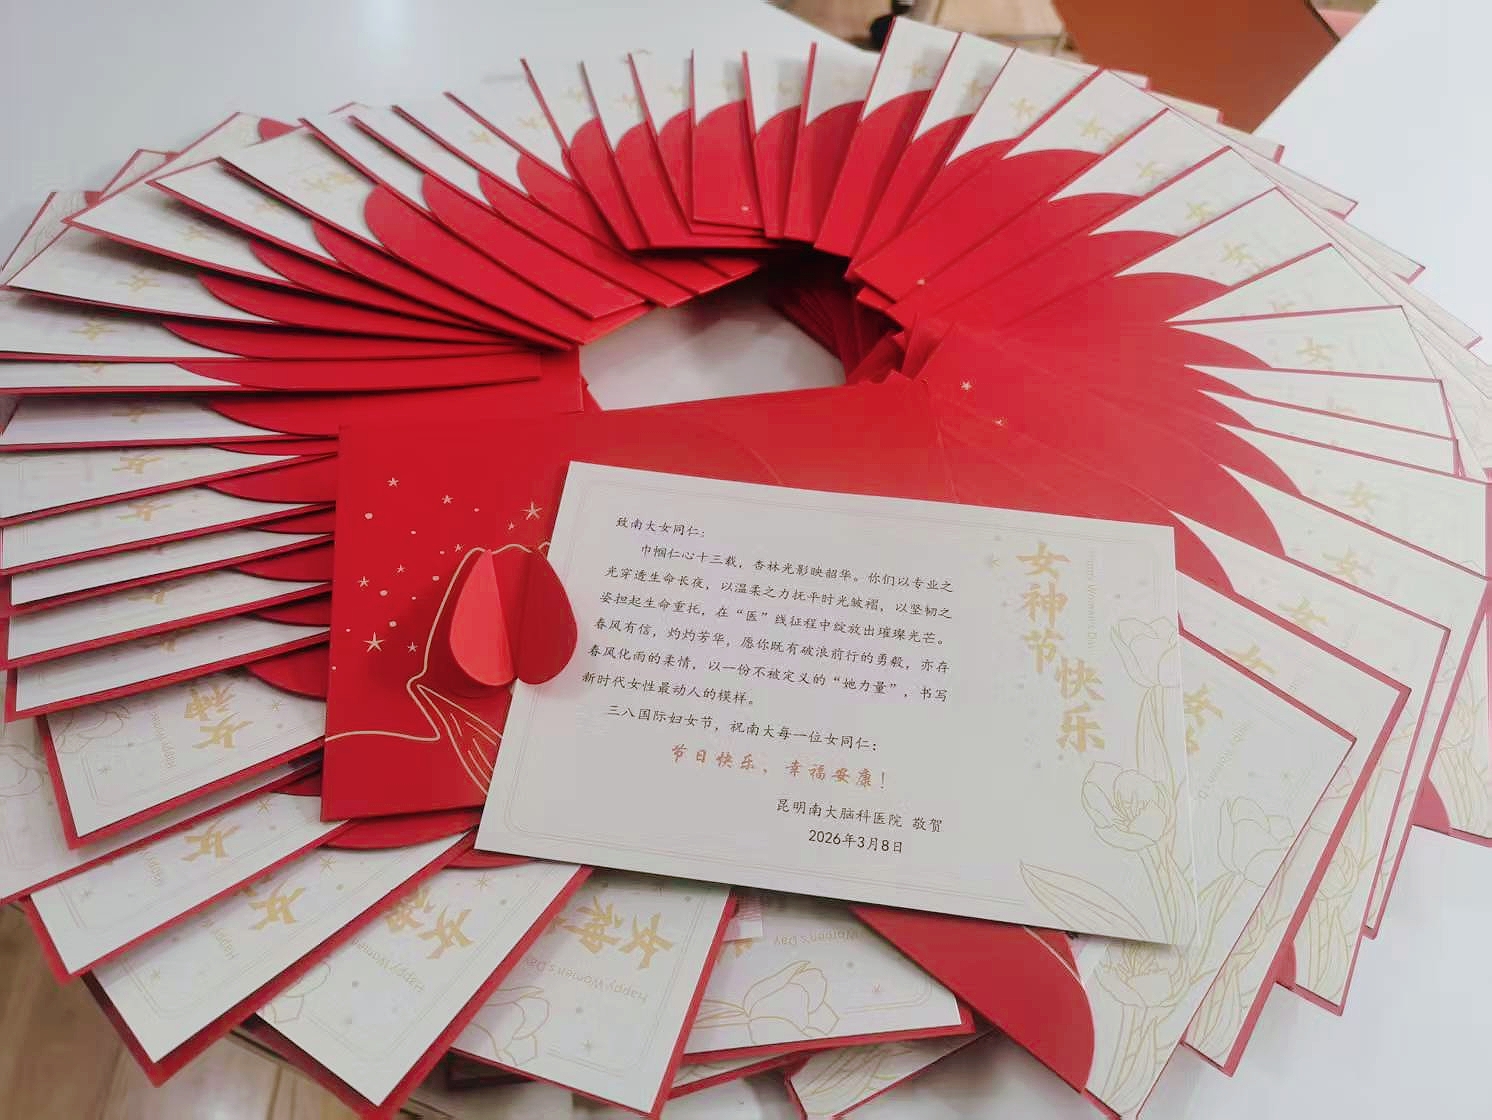 致南大女同仁：
巾帼仁心十三载，杏林光影映韶华。你们以专业之
光穿透生命长夜，以温柔之力抚平时光皱褶，以坚韧之
姿担起生命重托，在“医”线征程中绽放出璀璨光芒。
春风有信，灼灼芳华，愿你既有破浪前行的勇毅，亦存
春风化雨的柔情，以一份不被定义的“她力量”，书写
新时代女性最动人的模样。
三八国际妇女节，祝南大每一位女同仁：
节日快乐，幸福安康！
昆明南大脑科医院 敬贺
2026年3月8日
女神节
快乐
Happy Women's Day
女神
Happy Women's Day
女
女神
Happy Women's Day
女神
Happy Women's Day
Women's Day